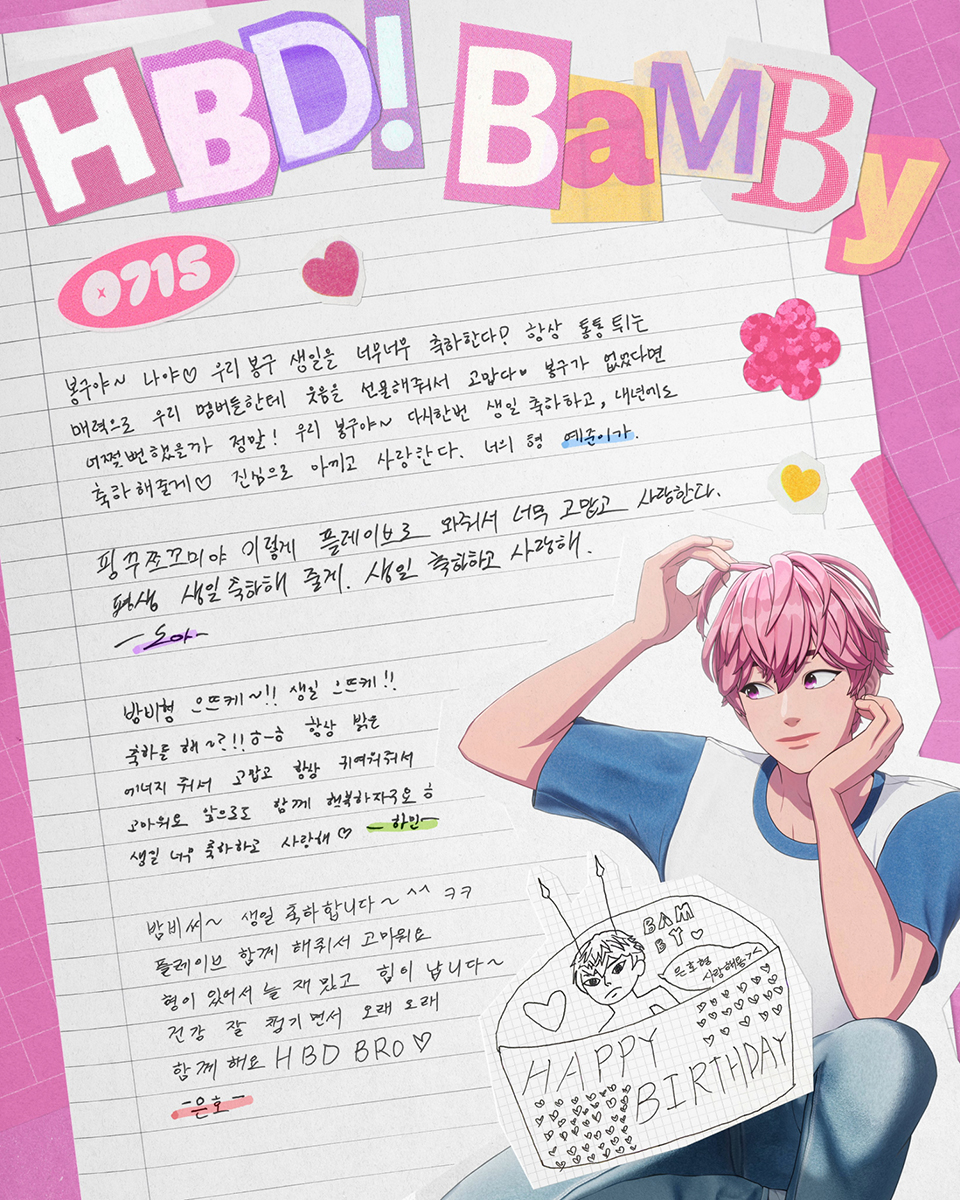 HBD! BaMBy
0715
봉구야~ 나야♡ 우리 봉구 생일을 너무너무 축하한다? 항상 통통 튀는
매력으로 우리 멤버들한테 웃음을 선물해줘서 고맙다♥ 봉구가 없었다면
어쩔뻔했을까 정말! 우리 봉구야~ 다시한번 생일 축하하고, 내년에도
축하해줄게♡ 진심으로 아끼고 사랑한다. 너의 형 예준이가.
핑꾸쪼꼬미야 이렇게 플레이브로 와줘서 너무 고맙고 사랑한다.
평생 생일축하해 줄게. 생일 축하하고 사랑해.
- 노아-
밤비형 으뜨케~!! 생일 으뜨케!!
축하를 해~?!!ㅎ-ㅎ 항상 밝은
에너지 줘서 고맙고 항상 귀여워줘서
고마워요 앞으로도 함께 행복하자구요 ㅎ
생일 너무 축하하고 사랑해 ♡ - 하민-
밤비씨~ 생일 축하합니다~^^ ㅋㅋ
플레이브 함께 해줘서 고마워요
형이 있어서 늘 재밌고 힘이 납니다~
건강 잘 챙기면서 오래 오래
함께 해요 HBD BRO♡
-은호-
BAM
BY♡
은호형
사랑해용
HAPPY
BIRTHDAY